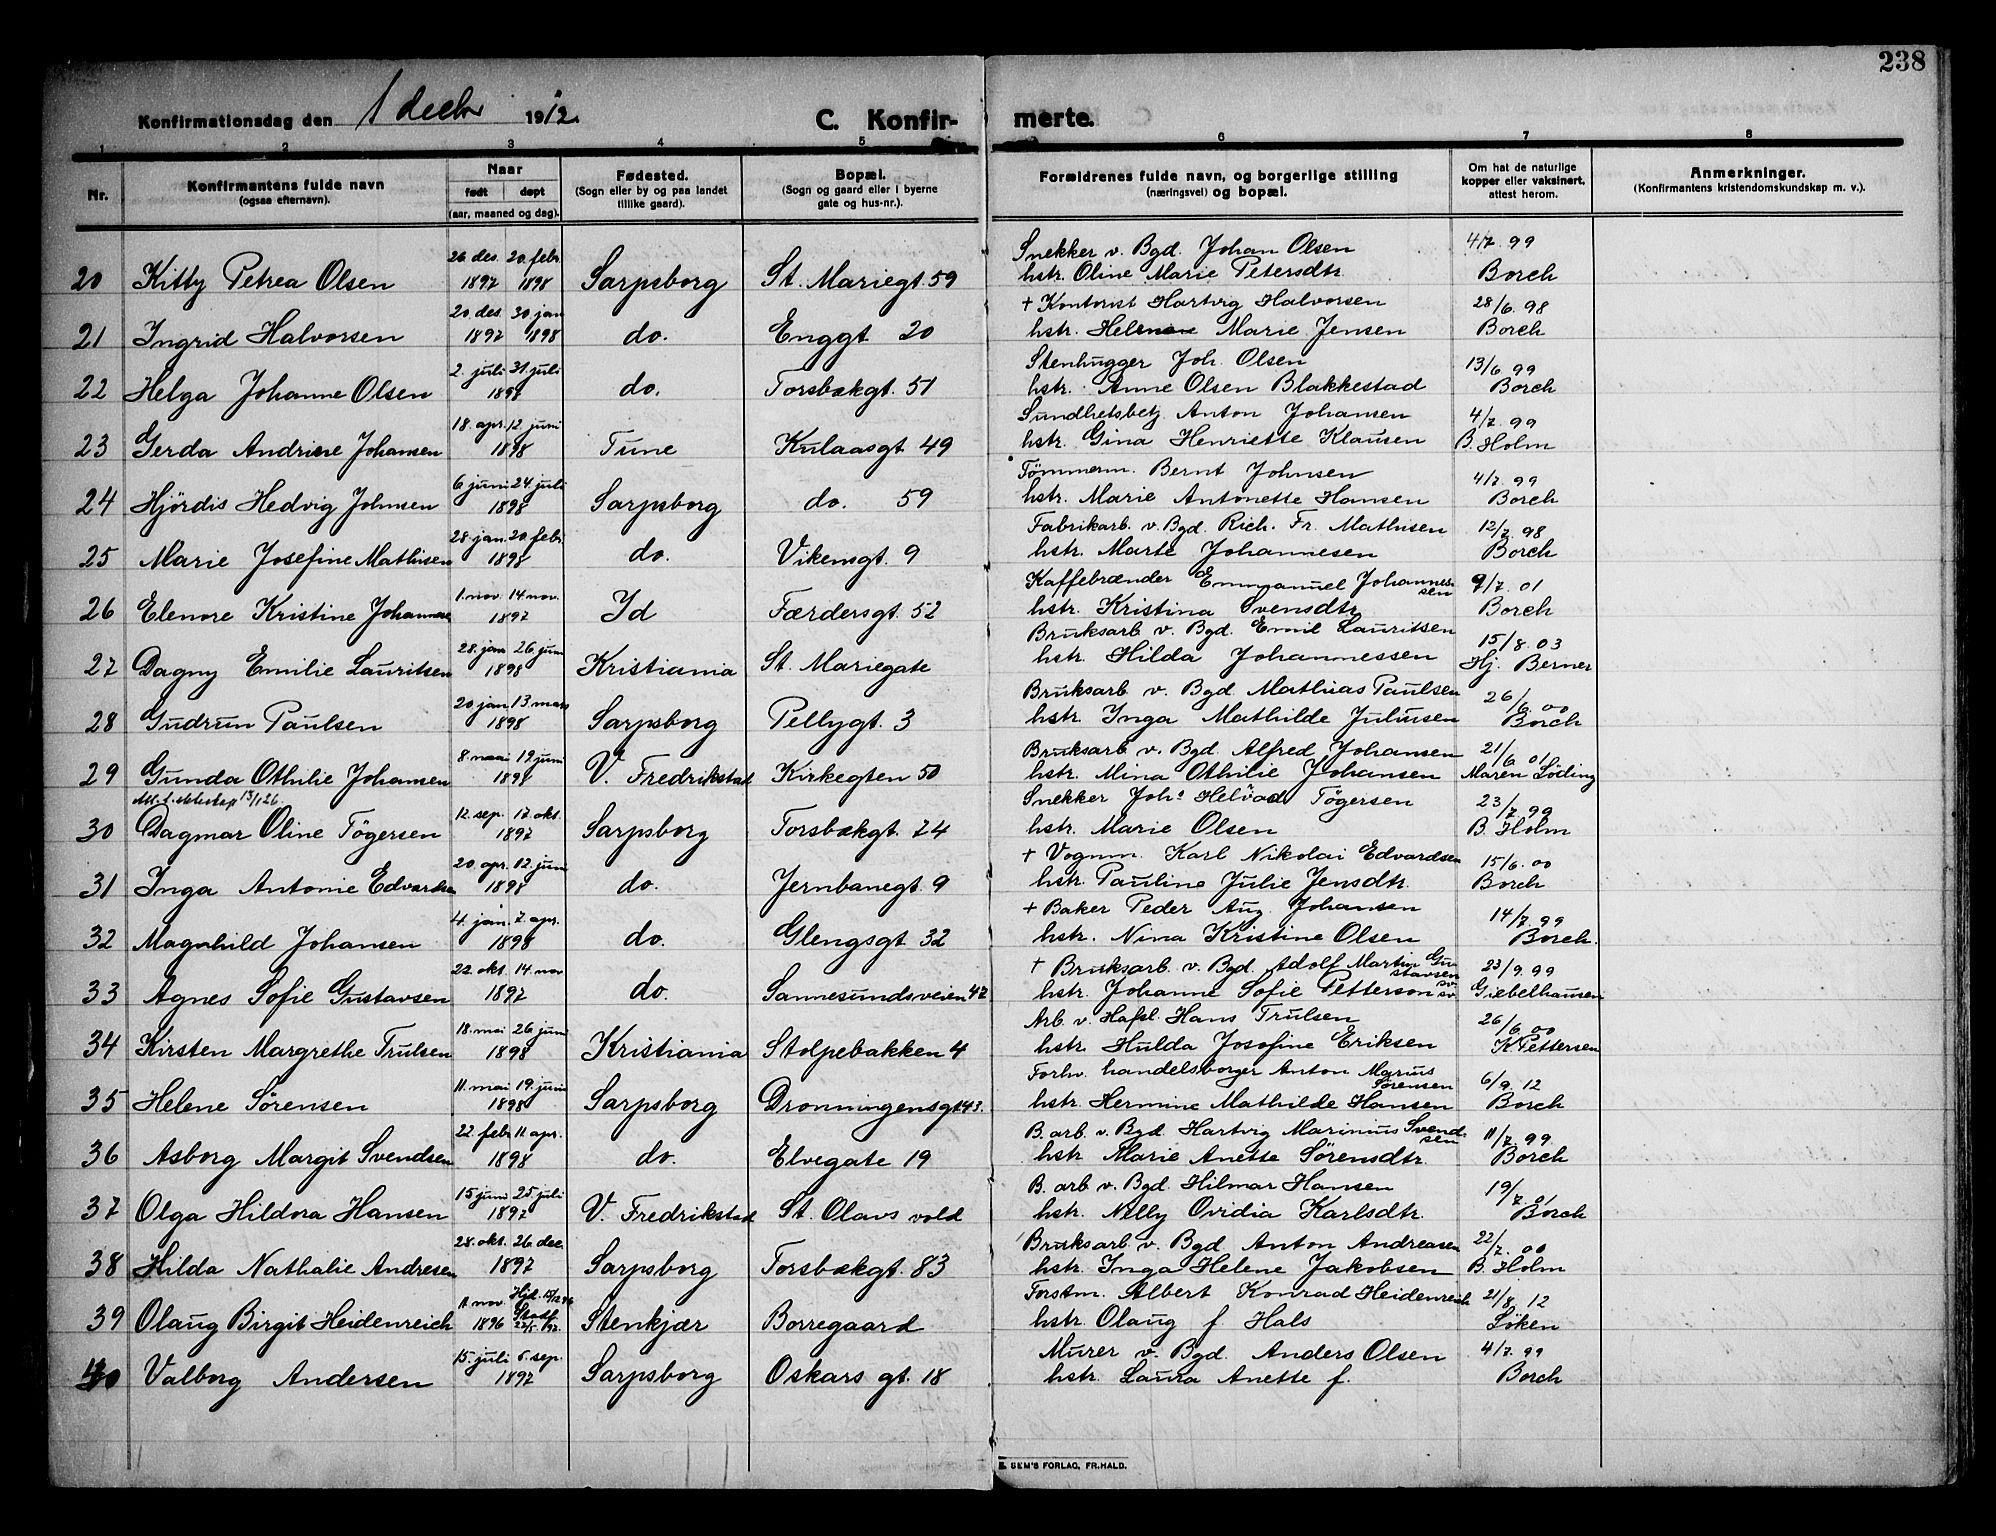 238
Konfirmationsdag den 1 decbr 1912
C. Konfirmerte.
1 2 3 4 5 6 7 8
Nr.
Konfirmantens fulde navn
(ogsaa efternavn).
Naar
født døpt
(aar, maaned og dag).
Fødested.
(Sogn eller by og paa landet
tillike gaard).
Bopæl.
(Sogn og gaard eller i byerne
gate og hus-nr.).
Forældrenes fulde navn, og borgerlige stilling
(næringsvei) og bopæl.
Om hat de naturlige
kopper eller vaksinert,
attest herom.
Anmerkninger.
(Konfirmantens kristendomskundskap m. v.).
26 des. 20. febr. Snekker v. Bgd. Johan Olsen 4/7 99
20 Kitty Petrea Olsen 1897 1898 Sarpsborg St. Mariegt. 59 hstr. Oline Marie Petersdtr. Borch
20 des. 30. jan + Kontorist Hartvig Halvorsen 28/6. 98
21 Ingrid Halvorsen 1897 1898 do. Enggt. 20 hstr. Marie Jensen Borch
2. juli 31. juli Stenhugger Joh. Olsen 13/6 99
22 Helga Johanne Olsen 1898 do. Torsbækgt. 51 hstr. Anne Olsen Blakkestad Borch
18. apr. 12. juni Sundhetsbetj. Anton Johansen 4/7. 99
23 Gerda Andrine Johansen 1898 Tune Kulaasgt 49 hstr. Gina Henriette Klausen B. Holm
6 juni 24. juli Tømmerm. Bernt Johnsen 4/7. 99
24 Hjördis Hedvig Johnsen 1898 Sarpsborg do. 59 hstr. Marie Antonette Hansen Borch
28. jan. 20. febr. Fabrikarb. v. Bgd. Rich. Fr. Mathisen 12/7. 98
25 Marie Josefine Mathisen 1898 do. Vikensgt. 9 hstr. Marte Johannesen Borch
1. nov. 14 nov. Kaffebrænder Emmanuel Johannessen 9/7. 01
26 Elenore Kristine 1897 Id Færdersgt. 52 hstr. Kristina Svensdtr. Borch
28. jan 26. juni Bruksarb. v. Bgd. Emil Lauritsen 15/8. 03
27 Dagny Emilie Lauritsen 1898 Kristiania St. Mariegate hstr. Hilda Johannessen Hj. Berner
20 jan. 13 mars Bruksarb v. Bgd. Mathias Paulsen 26/6. 00
28 Gudrun Paulsen 1898 Sarpsborg Pellygt. 3 hstr. Inga Mathilde Juliusen Borch
8. mai 19. juni Bruksarb. v. Bgd. Alfred Johansen 21/6 01
29 Gunda Othilie Johansen 1898 V. Fredrikstad Kirkegten 50 hstr. Mina Othilie Johansen Maren Løding
13/1 26. 12. sep. 17. okt. Snekker Tøgersen 23/7. 99
30 Dagmar Oline Tøgersen 1897 Sarpsborg Torsbækgt. 24 hstr. Marie Olsen B. Holm
20 apr. 12. juni + Vognm. Karl Nikolai Edvardsen 15/6. 00
31 Inga Antonie Edvardsen 1898 do. Jernbanegt. 9 hstr. Pauline Julie Jensdtr. Borch
4. jan. 7. apr. + Baker Peder Aug. Johansen 14/7. 99
32 Magnhild Johansen 1898 do. Glengsgt 32 hstr. Nina Kristine Olsen Borch.
22. okt. 14. nov + Bruksarb. v. Bgd. Adolf Martin Gustavsen 23/9. 99
33 Agnes Sofie Gustavsen 1897 do. Sannesundsveien 47 hstr. Johanne Sofie Petterson Giebelhausen
18. mai 26 juni Arb. v. Hafsl. Hans Trulsen 26/6. 00
34 Kirsten Margrethe Trulsen 1898 Kristiania Stolpebakken 4 hstr. Hulda Josofine Eriksen K. Pettersen
11. mai 19. juni Forhv. handelsborger Anton Marius Sørensen 6/9. 12
35 Helene Sørensen 1898 Sarpsborg Dronningensgt 43. hstr. Hermine Mathilde Hansen Borch
22. febr 11 apr. B. arb. v. Bgd. Hartvig Marinius Svendsen 11/7. 99.
36 Asborg Margit Svendsen 1898 do. Elvegate 19 hstr Marie Anette Sörensdtr. Borch
15. juni 25. juli B. arb v. Bgd. Hilmar Hansen 19/7. 01
37 Olga Hildora Hansen 1897 V. Fredrikstad St. Olavs vold hstr. Nelly Ovidia Karlsdtr. Borch
28. okt. 26. dec. Bruksarb. v. Bgd Anton Andreasen 22/7. 00
38 Hilda Nathalie Andresen 1897 Sarpsborg Torsbækgt. 83 hstr. Inga Helene Jakobsen B. Holm
nov. Hjd. Forstm. Albert Konrad Heidenreich 21/8. 12
39 Olaug Birgit Heidenreich 1896 Stenkjær Borregaard hstr. Olaug f. Hals Løken
15. juli 5. sep. Murer v. Bgd. Anders Olsen 4/7. 99
40 Valborg Andersen 1897 Sarpsborg Oskars gt. 18 hstr. Laura Anette f. Borch
E. SEM'S FORLAG, FR.HALD.